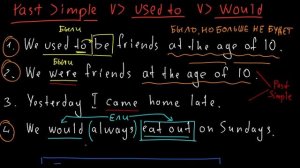 Past Simple VS Used to VS Would
были
БЫЛО, НО БОЛЬШЕ НЕ БУДЕТ
1. We used to be friends at the age of 10.
были
2. We were friends at the age of 10.
Past Simple
3. Yesterday I came home late.
ели
4. We would (always) eat out on Sundays.